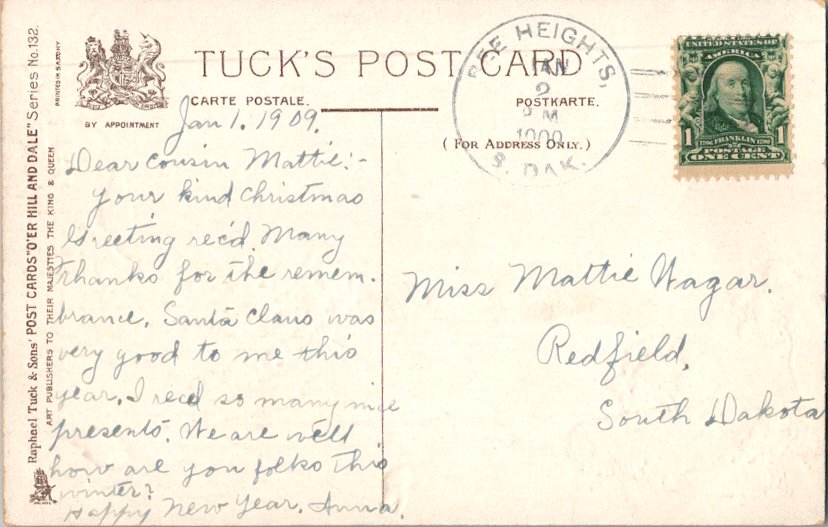 Raphael Tuck & Sons' POST CARDS "O'ER HILL AND DALE" Series No. 132.
ART PUBLISHERS TO THEIR MAJESTIES THE KING & QUEEN
PRINTED IN SAXONY
BY APPOINTMENT
TUCK'S POST CARD
CARTE POSTALE.
POSTKARTE.
(FOR ADDRESS ONLY.)
REE HEIGHTS,
JAN
2
M
1909
S. DAK.
UNITED STATES OF
AMERICA
1 1706 FRANKLIN 1790 1
POSTAGE
ONE CENT
Jan 1. 1909.
Dear Cousin Mattie:-
Your kind Christmas
Greeting rec'd. Many
Thanks for the remem-
brance. Santa Claus was
very good to me this
year. I recd so many nice
presents. We are well
how are you folks this
winter?
Happy New Year. Anna.
Miss Mattie Wagar.
Redfield,
South Dakota